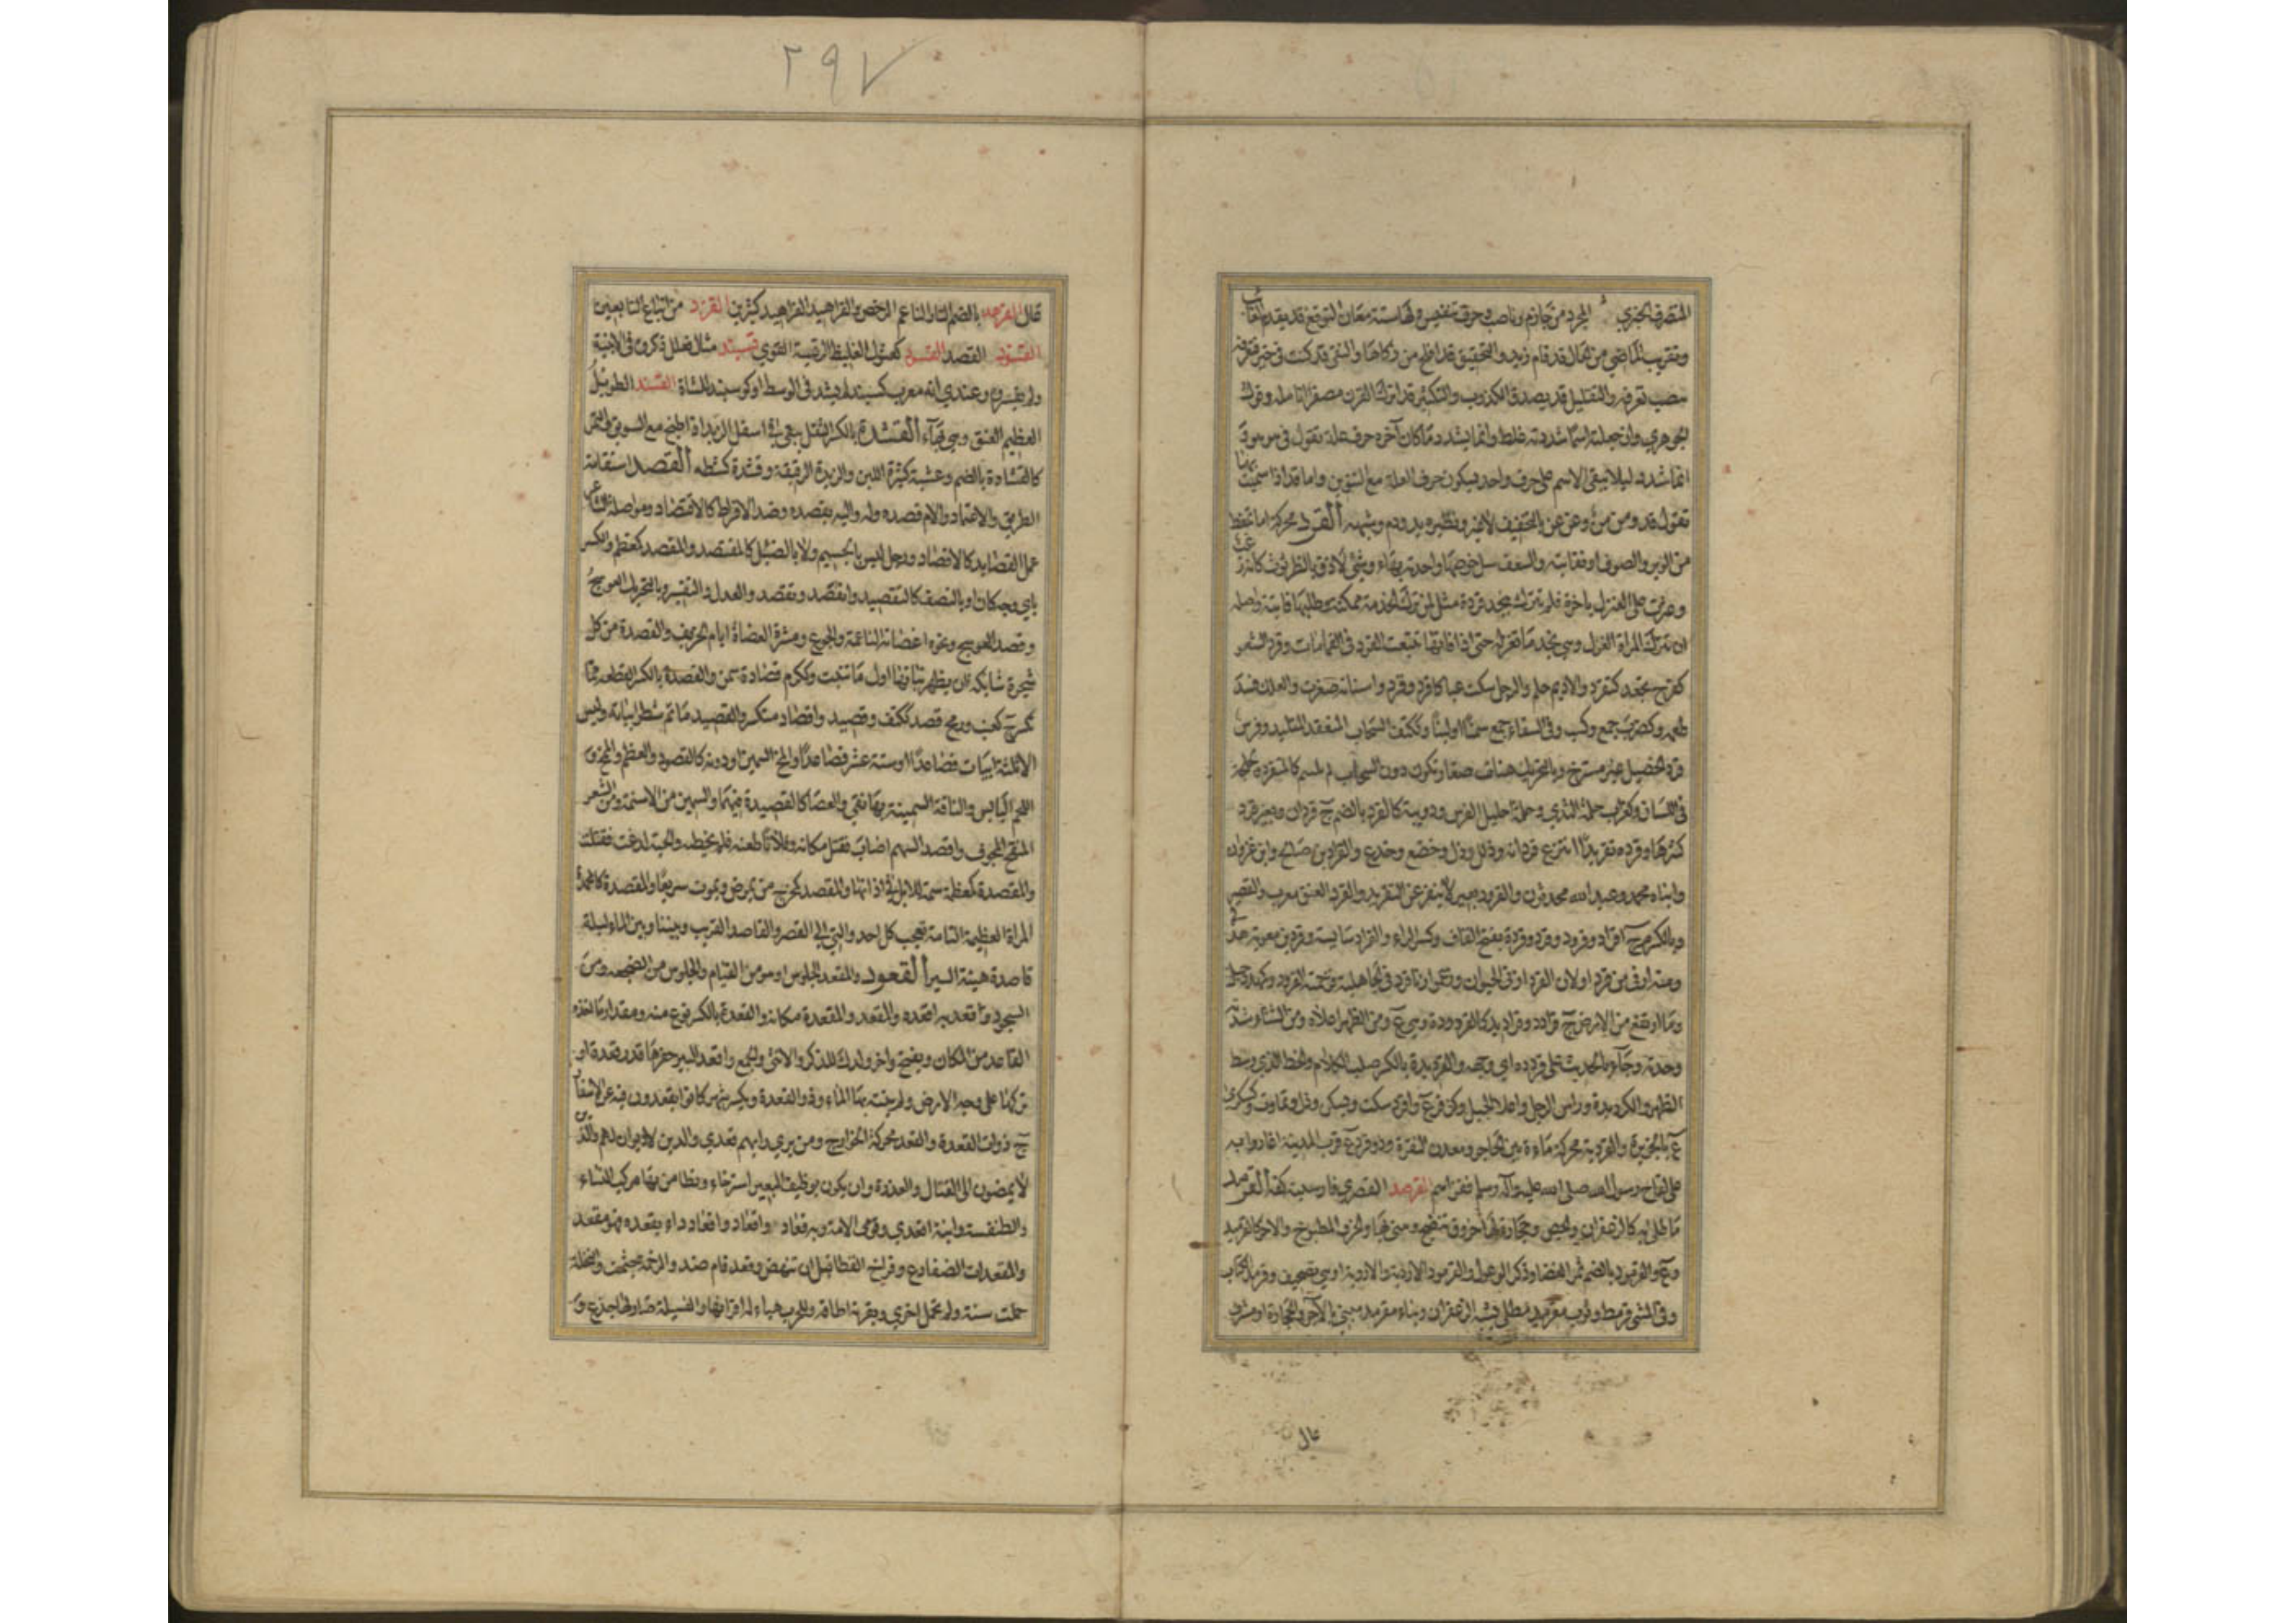 ٢٩٧
المتصرف الخبري المجرد من جازم وناصب وحرف تنفيس ولها ستة معان التوقع قد يقدم الغائب
وتقريب الماضي من الحال قد قام زيد والتحقيق قد افلح من زكاها والنفي قد كنت في خير فتعرفه
بنصب تعرفه والتقليل قد يصدق الكذوب والتكثير قد اترك القرن مصفرا انامله وقول
الجوهري وان جعلته اسما شددته غلط وانما يشدد ما كان آخره حرف علة تقول في هو هوّ
انما شدد ليلا يبقى الاسم على حرف واحد بسكون حرف العلة مع التنوين واما قد اذا سميت بها
تقول قد ومن من وعن عن بالتخفيف لا غير ونظيره يد ودم وشبهه القرد محركة ما تمعط
من الوبر والصوف او نفايته والسعف سل خوصها واحدته بهاء وشئ لازق بالطرثوث كانه زغب
وعثرت على الغزل باخرة فلم تترك بنجد قردة مثل لمن ترك الحاجة ممكنة وطلبها فايتة واصله
ان تترك المراة الغزل وهي تجد ما تغزله حتى اذا فاتها تتبعت القرد في القمامات وقرد الشعر
كفرح تجعد كتقرد والاديم حلم والرجل سكت عيا كاقرد وقرد واسنانه صغرت والعلك فسد
طعمه وكضرب جمع وكسب وفي السقاء جمع سمنا او لبنا وككتف السحاب المنعقد المتلبد وفرس
قرد الخصيل غير مسترخ وبالتحريك هنات صغار تكون دون السحاب لم تلتئم كالمتقرد ولجلجة
في اللسان وكغراب حلمة الثدي وحلمة احليل الفرس ودويبة كالقرد بالضم ج قردان وبعير قرد
كثرها وقرده تقريدا انتزع قردانه وذلل وذل وخضع وخدع والقراد بن صالح وابن غزوان
وابناه محمد وعبد الله محدثون والقرود بعير لا ينفر عن التقريد والقرد العنق معرب والقصير
وبالكسر م ج اقراد وقرود وقرد وقردة بفتح القاف وكسر الراء والقراد سايسه وقرد بن معوية هذلي
ومنه ازنى من قرد او لان القرد ازنى الحيوان وزعموا ان قرد زنى في الجاهلية فرجمته القرود وكمهدد جبل
وما ارتفع من الارض ج قرادد وقراديد كالقردودة وهي ع ومن الظهر اعلاه ومن الشتاء شدته
وحدته وجاء بالحديث على قردده اي وجهه والقرديدة بالكسر صلب الكلام والخط الذي وسط
الظهر والكرديدة وراس الرجل واعلا الجبل وذو قرد ع واقرد سكت وسكن وذل وتماوت وكسكرى
ع بالجزيرة والقردية محركة ماءة بين الحاجر ومعدن النقرة وذو قرد ع قرب المدينة اغاروا به
على لقاح رسول الله صلى الله عليه وآله وسلم فغزاهم القرصد القصري فارسيته كفه القرمد
ما طلي به كالزعفران والجص وحجارة لها خروق تنضج ويبنى بها والخزف المطبوخ والآجر كالقرميد
و ع والقرمود بالضم ثمر الغضا وذكر الوعول والقرميد الاروية والاردبة او هي تصحيف وقرمد الكتاب
وفي المشي قرمط وثوب مقرمد مطلي بشبه الزعفران وبناء مقرمد مبني بالآجر والحجارة او مشرف
قال
قال القرهد بالضم التار الناعم الرخص والقراهيد الفراهيد كثير بن القرند من اتباع التابعين
القشود القصد القسود كصبور الغليظ الرقبة القوي قسبند مثال فعلل ذكره في الابنية
ولم يفسروه وعندي انه معرب كسبند لما يشد في الوسط او كوسبند للشاة القسند الطويل
العظيم العنق وهي بهاء القشدة بالكسر الثفل يبقى اسفل الزبد اذا طبخ مع السويق والتمر
كالقشادة بالضم وعشبة كثيرة اللبن والزبدة الرقيقة وقشدة كشطه القصد استقامة
الطريق والاعتماد والام قصده وله واليه يقصده وضد الافراط كالاقتصاد ومواصلة الشاعر
عمل القصايد كالاقصاد ورجل ليس بالجسيم ولا بالضئيل كالمقتصد والمقصد كمعظم والكسر
باي وجه كان او بالنصف كالتقصيد وانقصد وتقصد والعدل والتقتير وبالتحريك العوسج
وقصد العوسج ونحوه اغصانه الناعمة والجوع ومشرة العضاة ايام الخريف والقصدة من كل
شجرة شايكة ان يظهر نباتها اول ما تنبت وككرم قصادة سمن والقصدة بالكسر القطعة مما
يكسر ج كعنب ورمح قصد ككتف وقصيد واقصاد متكسر والقصيد ما تم شطر ابياته وليس
الا ثلثة ابيات فصاعدا او ستة عشر فصاعدا والمخ السمين او دونه كالقصود والعظم والممخ و
اللحم اليابس والناقة السمينة بها نقي والعصا كالقصيدة فيهما والسمين من الاسنمة ومن الشعر
المنقح المجود واقصد السهم اصاب فقتل مكانه وفلانا طعنه فلم يخطه والحية لدغت فقتلت
والمقصدة كمعظمة سمة للابل في اذانها والمقصد كمخرج من يمرض ويموت سريعا والمقصدة كالمحمدة
المراة العظيمة التامة تعجب كل احد والتي الى القصر والقاصد القريب وبيننا وبين الماء ليلة
قاصدة هينة السير القعود والمقعد الجلوس او هو من القيام والجلوس من الضجعة ومن
السجود واقعد به اقعده والمقعد والمقعدة مكانه والقعدة بالكسر نوع منه ومقدار ما اخذه
القاعد من المكان ويفتح واخر ولدك للذكر والانثى والجمع واقعد البير حفرها قدر قعدة او
تركها على وجه الارض ولم ينته بها الماء وذو القعدة ويكسر شهر كانوا يقعدون فيه عن الاسفار
ج ذوات القعدة والقعد محركة الخوارج ومن يرى رايهم قعدي والذين لا ديوان لهم والذين
لا يمضون الى القتال والعذرة وان يكون بوظيف البعير استرخاء وتطامن وبها مركب للنساء
والطنفسة وابنة اقعدي وقومي الامة وبه قعاد واقعاد داء يقعده فهو مقعد
والمقعدات الضفادع وفراخ القطا قبل ان تنهض وقعد قام ضد والرخمة جثمت والنخلة
حملت سنة ولم تحمل اخرى وبقرنه اطاقه وللحرب هيا لها اقرانها والفسيلة صار لها جذع و